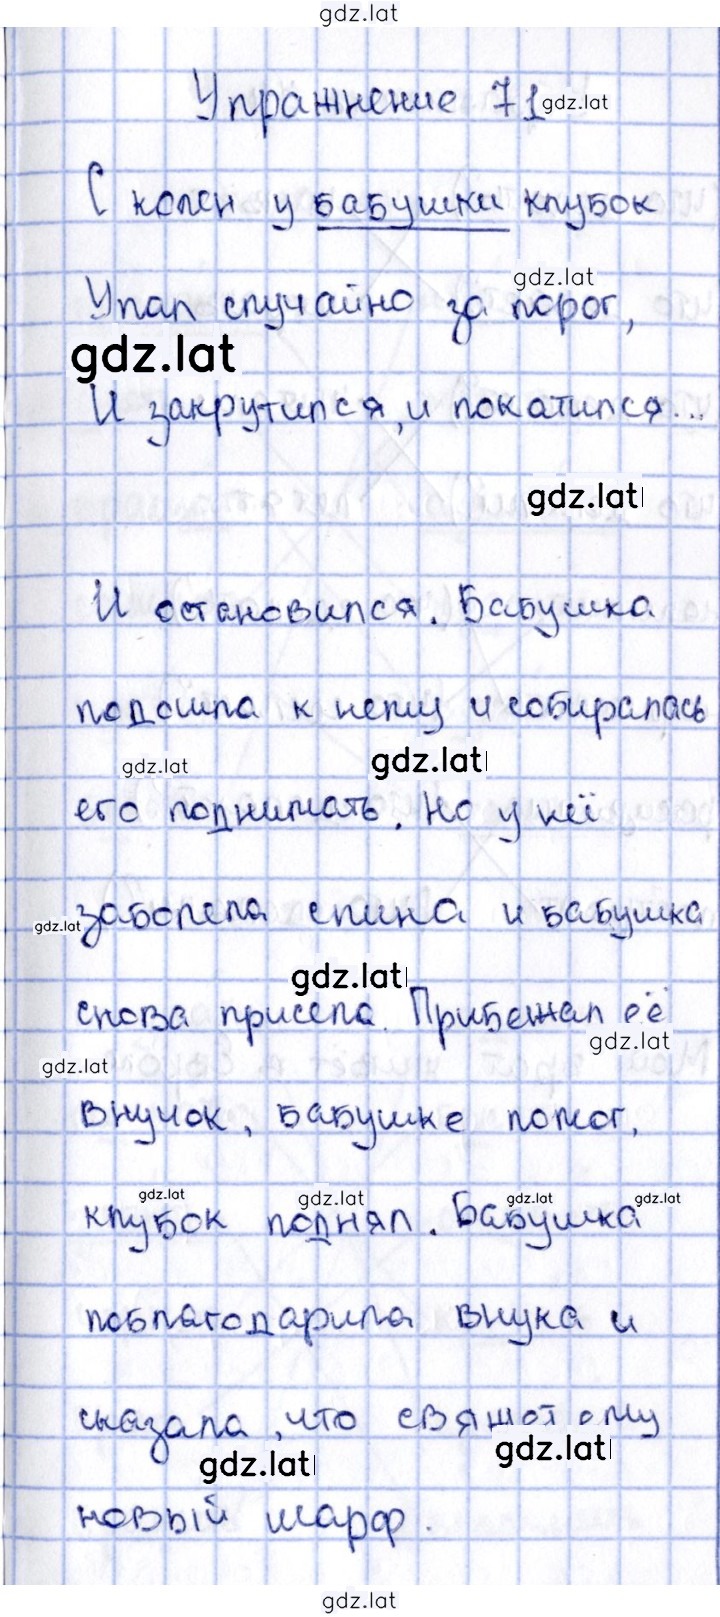 gdz.lat
Упражнение 71 gdz.lat
С колен у бабушки клубок
gdz.lat
Упал случайно за порог,
gdz.lat
И закрутился, и покатился...
gdz.lat
И остановился. Бабушка
подошла к нему и собиралась
gdz.lat gdz.lat
его поднимать. Но у неё
gdz.lat заболела спина и бабушка
gdz.lat
снова присела. Прибежал её
gdz.lat gdz.lat
внучок, бабушке помог,
gdz.lat gdz.lat gdz.lat gdz.lat
клубок поднял. Бабушка
поблагодарила внука и
сказала, что свяжет ему
gdz.lat gdz.lat
новый шарф.
gdz.lat